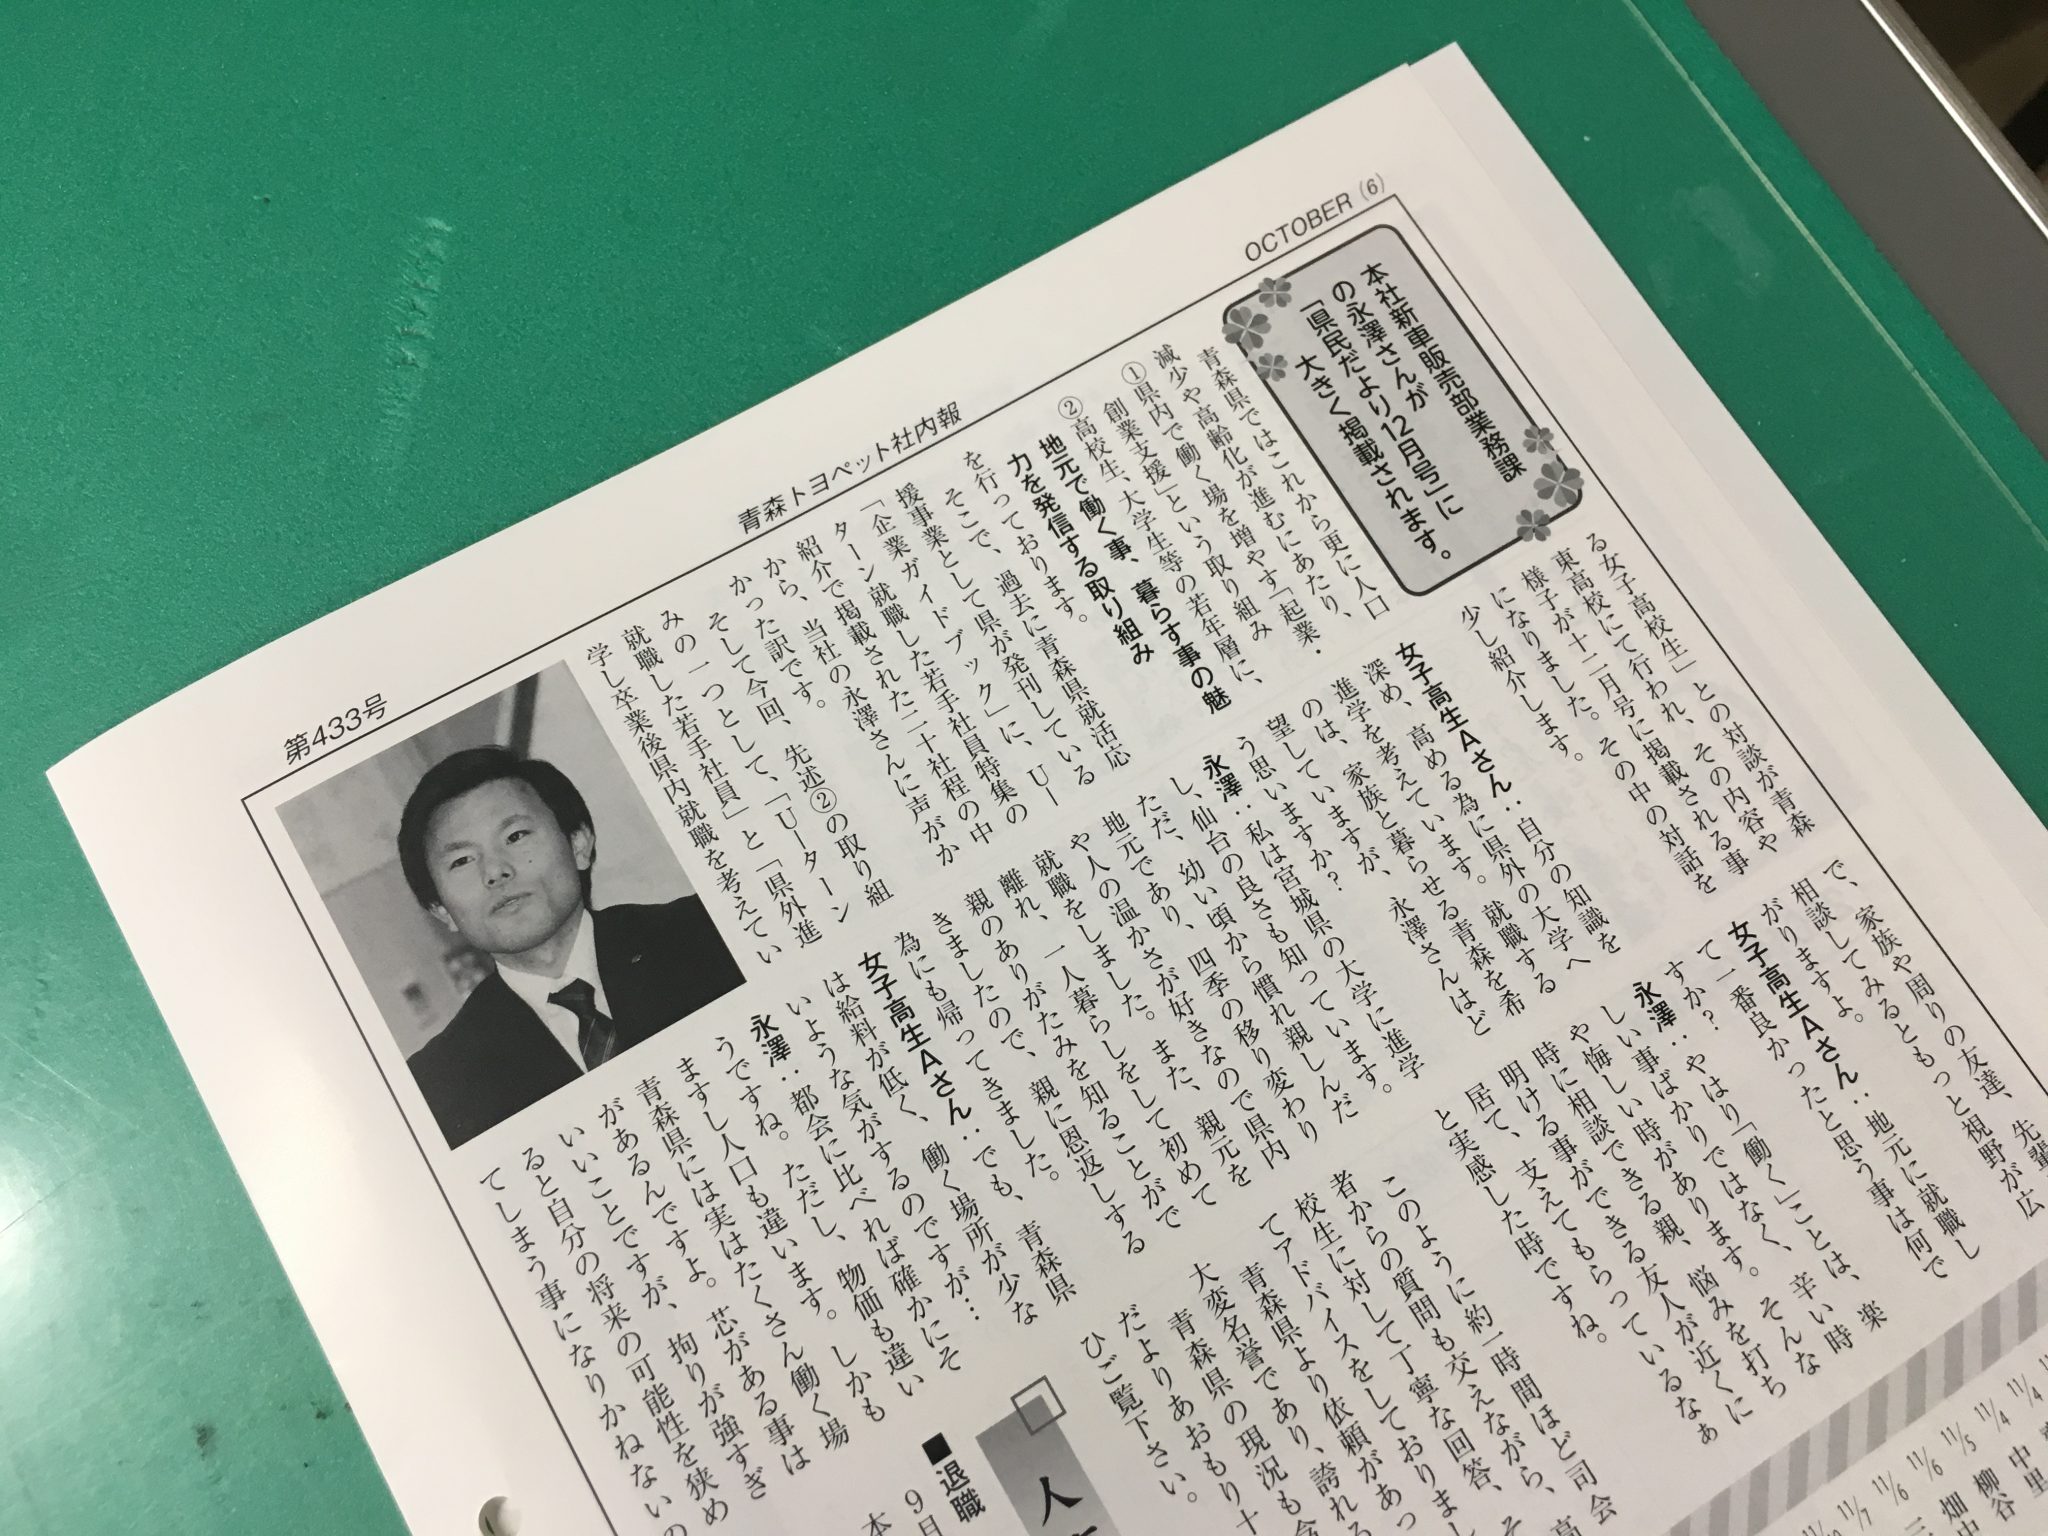 OCTOBER (6)
青森トヨペット社内報
第433号
本社新車販売部業務課
の永澤さんが12月号」に
「県民だより
大きく掲載されます。
青森県ではこれから更に人口
減少や高齢化が進むにあたり、
①県内で働く場を増やす「起業・
創業支援」という取り組み
②高校生、大学生等の若年層に、
地元で働く事、暮らす事の魅
力を発信する取り組み
を行っております。
そこで、過去に青森県就活応
援事業として県が発刊している
「企業ガイドブック」に、U
ターン就職した若手社員特集の
紹介で掲載された二十社程の中
から、当社の永澤さんに声がか
かった訳です。
そして今回、先述②の取り組
みの一つとして、「Uターン
就職した若手社員」と「県外進
学し卒業後県内就職を考えてい
る女子高校生」との対談が青森
東高校にて行われ、その内容や
様子が十二月号に掲載される事
になりました。その中の対話を
少し紹介します。
女子高生Aさん：自分の知識を
深め、高める為に県外の大学へ
進学を考えています。就職する
のは、家族と暮らせる青森を希
望していますが、永澤さんはど
う思いますか？
永澤：私は宮城県の大学に進学
し、仙台の良さも知っています。
ただ、幼い頃から慣れ親しんだ
地元であり、四季の移り変わり
や人の温かさが好きなので県内
就職をしました。また、親元を
離れ、一人暮らしをして初めて
親のありがたみを知ることがで
きましたので、親に恩返しする
為にも帰ってきました。
女子高生Aさん：でも、青森県
は給料が低く、働く場所が少な
いような気がするのですが…
永澤：都会に比べれば確かにそ
うですね。ただし、物価も違い
ますし人口も違います。しかも
青森県には実はたくさん働く場
があるんですよ。芯がある事は
いいことですが、拘りが強すぎ
ると自分の将来の可能性を狭め
てしまう事になりかねないの
で、家族や周りの友達、先輩
相談してみるともっと視野が広
がりますよ。
女子高生Aさん：地元に就職し
て一番良かったと思う事は何で
すか？
永澤：やはり「働く」ことは、楽
しい事ばかりではなく、辛い時
や悔しい時があります。そんな
時に相談できる親、悩みを打ち
明ける事ができる友人が近くに
居て、支えてもらっているなぁ
と実感した時ですね。
このように約一時間ほど司会
者からの質問も交えながら、
校生に対して丁寧な回答、そ
てアドバイスをしておりまし
青森県より依頼があっ
大変名誉であり、誇れる
青森県の現況も含
だよりあおもり十
ひご覧下さい。
人
■退職
9月
本
11/4
11/4
11/5
11/6
11/6
11/7
中里
柳谷
畑中
三